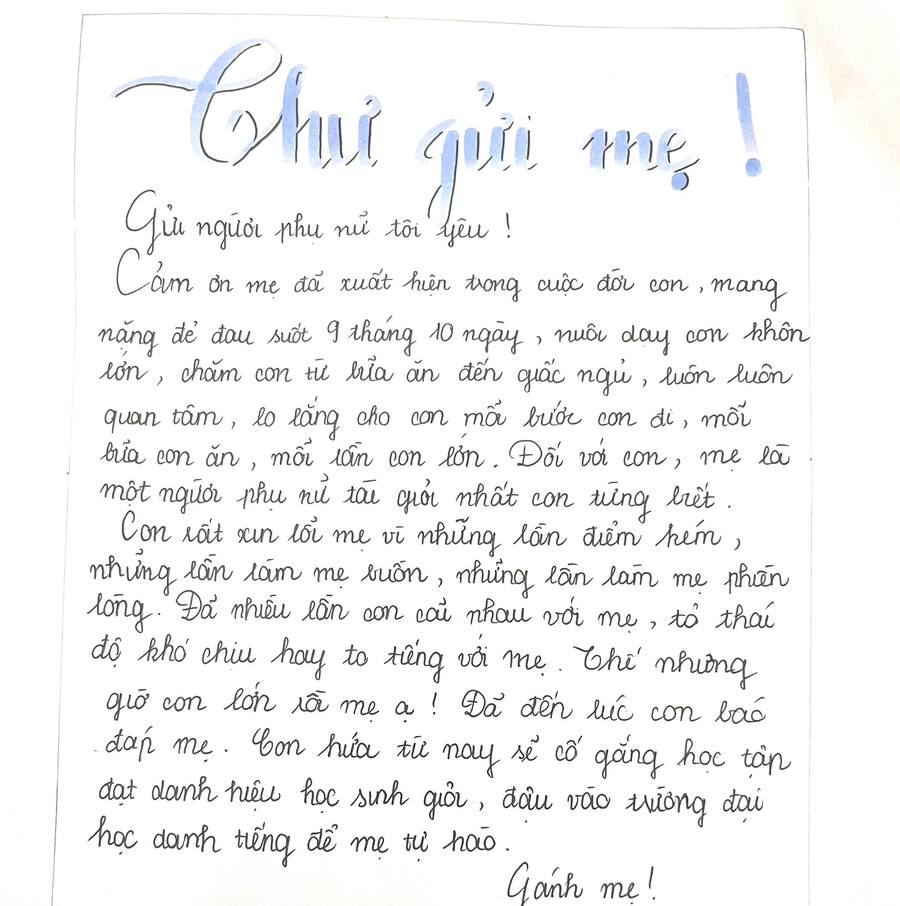 Thư gửi mẹ !
Gửi người phụ nữ tôi yêu !
Cảm ơn mẹ đã xuất hiện trong cuộc đời con, mang
nặng đẻ đau suốt 9 tháng 10 ngày, nuôi dạy con khôn
lớn, chăm con từ bữa ăn đến giấc ngủ, luôn luôn
quan tâm, lo lắng cho con mỗi bước con đi, mỗi
bữa con ăn, mỗi lần con lớn. Đối với con, mẹ là
một người phụ nữ tài giỏi nhất con từng biết.
Con rất xin lỗi mẹ vì những lần điểm kém,
những lần làm mẹ buồn, những lần làm mẹ phiền
lòng. Đã nhiều lần con cãi nhau với mẹ, tỏ thái
độ khó chịu hay to tiếng với mẹ. Thế nhưng
giờ con lớn rồi mẹ ạ ! Đã đến lúc con báo
đáp mẹ. Con hứa từ nay sẽ cố gắng học tập
đạt danh hiệu học sinh giỏi, đậu vào trường đại
học danh tiếng để mẹ tự hào.
Gánh mẹ !